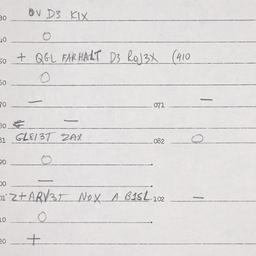 30 0V D3 KIX
40 O
50 + QGL FARHALT D3 ROJ3X (410
60 O
70 — 071 —
80 —
81 GLEI3T ZAX 082 O
90 O
00 —
01 Z+ARV3T NOX A B1SL 102 —
10 O
20 +